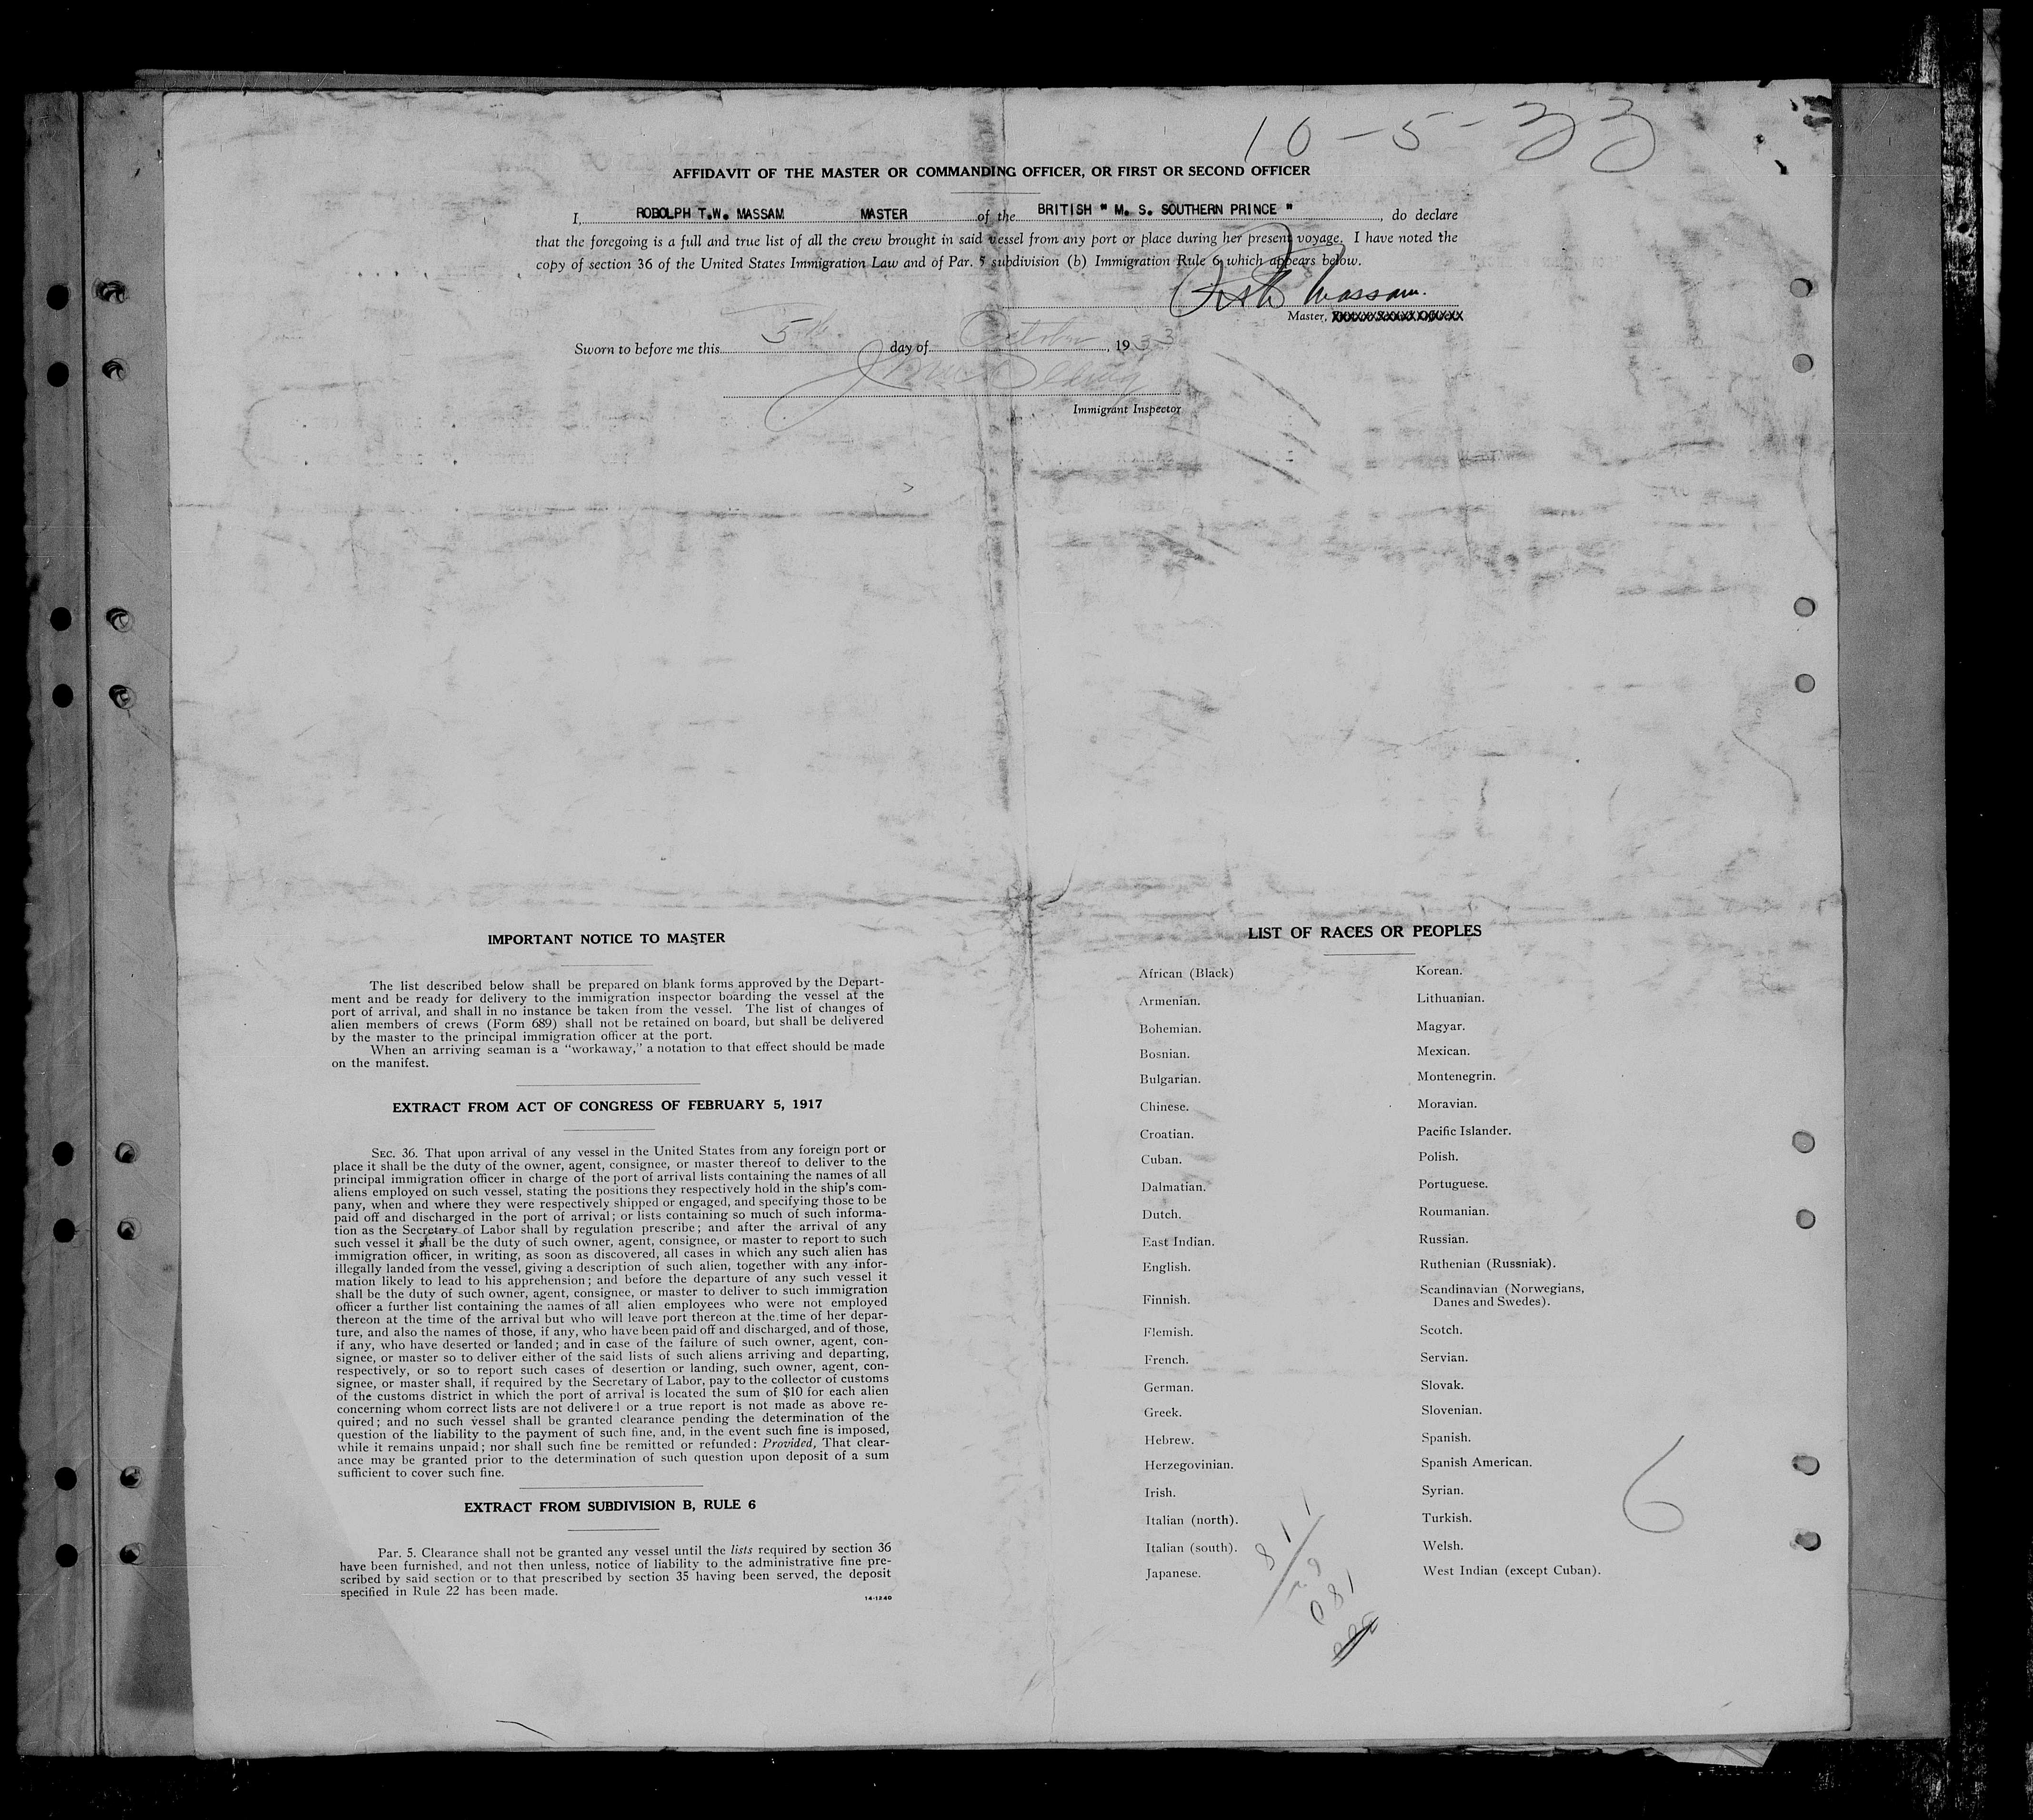 10-5-33
AFFIDAVIT OF THE MASTER OR COMMANDING OFFICER, OR FIRST OR SECOND OFFICER
I, ROBOLPH T.W. MASSAM MASTER of the BRITISH " M. S. SOUTHERN PRINCE " , do declare
that the foregoing is a full and true list of all the crew brought in said vessel from any port or place during her present voyage. I have noted the
copy of section 36 of the United States Immigration Law and of Par. 5 subdivision (b) Immigration Rule 6, which appears below.
Massam.
Master,
Sworn to before me this 5th day of October, 1933
Immigrant Inspector
IMPORTANT NOTICE TO MASTER
The list described below shall be prepared on blank forms approved by the Depart-
ment and be ready for delivery to the immigration inspector boarding the vessel at the
port of arrival, and shall in no instance be taken from the vessel. The list of changes of
alien members of crews (Form 689) shall not be retained on board, but shall be delivered
by the master to the principal immigration officer at the port.
When an arriving seaman is a "workaway," a notation to that effect should be made
on the manifest.
EXTRACT FROM ACT OF CONGRESS OF FEBRUARY 5, 1917
SEC. 36. That upon arrival of any vessel in the United States from any foreign port or
place it shall be the duty of the owner, agent, consignee, or master thereof to deliver to the
principal immigration officer in charge of the port of arrival lists containing the names of all
aliens employed on such vessel, stating the positions they respectively hold in the ship's com-
pany, when and where they were respectively shipped or engaged, and specifying those to be
paid off and discharged in the port of arrival; or lists containing so much of such informa-
tion as the Secretary of Labor shall by regulation prescribe; and after the arrival of any
such vessel it shall be the duty of such owner, agent, consignee, or master to report to such
immigration officer, in writing, as soon as discovered, all cases in which any such alien has
illegally landed from the vessel, giving a description of such alien, together with any infor-
mation likely to lead to his apprehension; and before the departure of any such vessel it
shall be the duty of such owner, agent, consignee, or master to deliver to such immigration
officer a further list containing the names of all alien employees who were not employed
thereon at the time of the arrival but who will leave port thereon at the time of her depar-
ture, and also the names of those, if any, who have been paid off and discharged, and of those,
if any, who have deserted or landed; and in case of the failure of such owner, agent, con-
signee, or master so to deliver either of the said lists of such aliens arriving and departing,
respectively, or so to report such cases of desertion or landing, such owner, agent, con-
signee, or master shall, if required by the Secretary of Labor, pay to the collector of customs
of the customs district in which the port of arrival is located the sum of $10 for each alien
concerning whom correct lists are not delivered or a true report is not made as above re-
quired; and no such vessel shall be granted clearance pending the determination of the
question of the liability to the payment of such fine, and, in the event such fine is imposed,
while it remains unpaid; nor shall such fine be remitted or refunded: Provided, That clear-
ance may be granted prior to the determination of such question upon deposit of a sum
sufficient to cover such fine.
EXTRACT FROM SUBDIVISION B, RULE 6
Par. 5. Clearance shall not be granted any vessel until the lists required by section 36
have been furnished, and not then unless, notice of liability to the administrative fine pre-
scribed by said section or to that prescribed by section 35 having been served, the deposit
specified in Rule 22 has been made.
14-1240
LIST OF RACES OR PEOPLES
African (Black)
Armenian.
Bohemian.
Bosnian.
Bulgarian.
Chinese.
Croatian.
Cuban.
Dalmatian.
Dutch.
East Indian.
English.
Finnish.
Flemish.
French.
German.
Greek.
Hebrew.
Herzegovinian.
Irish.
Italian (north).
Italian (south).
Japanese.
Korean.
Lithuanian.
Magyar.
Mexican.
Montenegrin.
Moravian.
Pacific Islander.
Polish.
Portuguese.
Roumanian.
Russian.
Ruthenian (Russniak).
Scandinavian (Norwegians,
Danes and Swedes).
Scotch.
Servian.
Slovak.
Slovenian.
Spanish.
Spanish American.
Syrian.
Turkish.
Welsh.
West Indian (except Cuban).
6